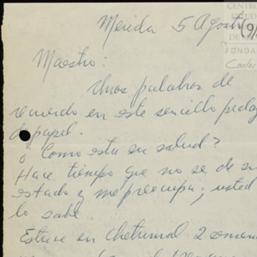 CENTR
FONDA
Merida 5 Agosto
Maestro:
Unos palabras de
recuerdo en este sencillo pedaz
de papel.
¿ Como esta su salud?
Hace tiempo que no se de su
estado y me preocupa; usted
lo sabe.
Estuve en Chetumal 2 seman